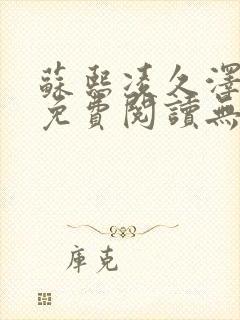 蘇熙凌久澤
免費閱讀無
庫克